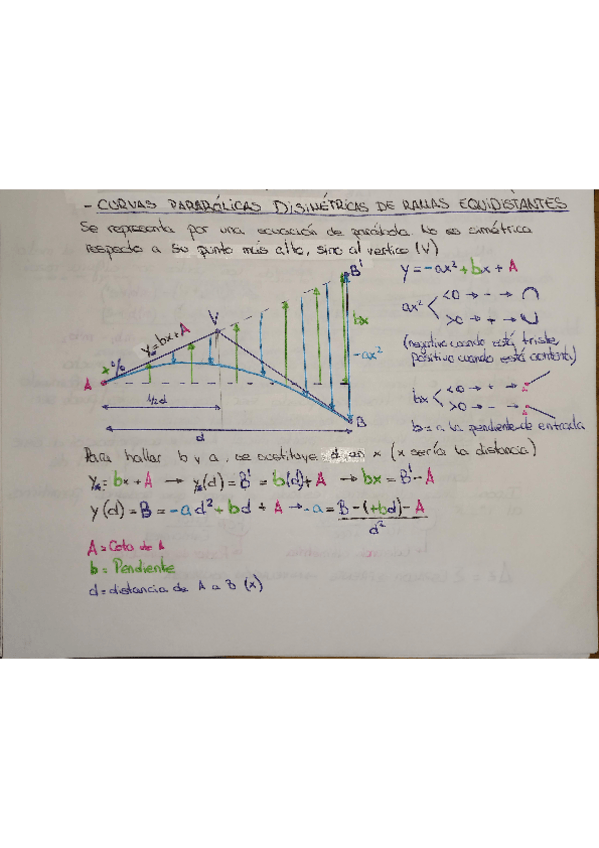 - CURVAS PARABÓLICAS DISIMÉTRICAS DE RAMAS EQUIDISTANTES
Se representa por una ecuación de parábola. No es simétrica
respecto a su punto más alto, sino al vertice (V)
B'
y = -ax² + bx + A
V
ax²
<0 → - → ∩
>0 → + → ∪
y = bx + A
bx
-ax²
x %
(negativo cuando está triste,
positivo cuando está contento)
A
bx
<0 → +
>0 → -
1/2 d
b = a la pendiente de entrada
B
d
Para hallar b y a, se sustituye d en x (x sería la distancia)
= bx + A → (d) = B' = b(d) + A → bx = B' - A
y(d) = B = -ad² + bd + A → -a = B - (+bd) - A
d²
A = Cota de A
b = Pendiente
d = distancia de A a B (x)